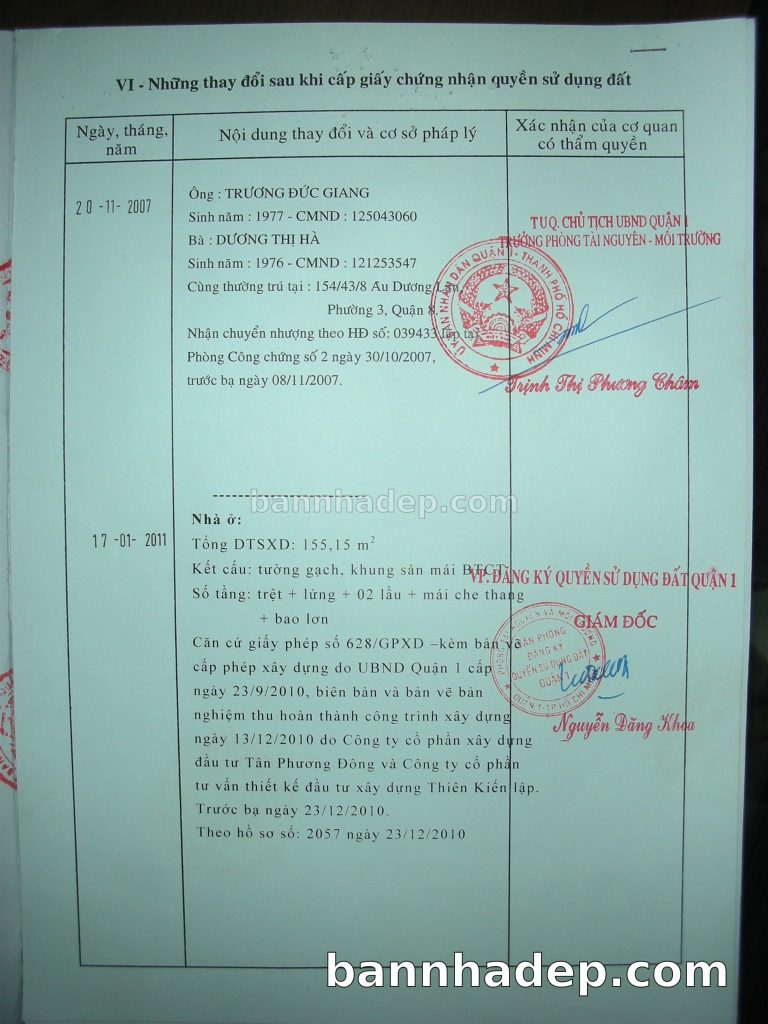 VI - Những thay đổi sau khi cấp giấy chứng nhận quyền sử dụng đất
Ngày, tháng, năm
Nội dung thay đổi và cơ sở pháp lý
Xác nhận của cơ quan có thẩm quyền
20-11-2007
Ông : TRƯƠNG ĐỨC GIANG
Sinh năm : 1977 - CMND : 125043060
Bà : DƯƠNG THỊ HÀ
Sinh năm : 1976 - CMND : 121253547
Cùng thường trú tại : 154/43/8 Au Dương Lân,
Phường 3, Quận 8.
Nhận chuyển nhượng theo HĐ số: 039433 lập tại
Phòng Công chứng số 2 ngày 30/10/2007,
trước bạ ngày 08/11/2007.
TUQ. CHỦ TỊCH UBND QUẬN 1
TRƯỞNG PHÒNG TÀI NGUYÊN - MÔI TRƯỜNG
ỦY BAN NHÂN DÂN QUẬN 1 - THÀNH PHỐ HỒ CHÍ MINH
Trịnh Thị Phương Châm
bannhadep.com
17-01-2011
Nhà ở:
Tổng DTSXD: 155,15 m²
Kết cấu: tường gạch, khung sàn mái BTCT
Số tầng: trệt + lửng + 02 lầu + mái che thang
+ bao lơn
Căn cứ giấy phép số 628/GPXD –kèm bản vẽ
cấp phép xây dựng do UBND Quận 1 cấp
ngày 23/9/2010, biên bản và bản vẽ bản
nghiệm thu hoàn thành công trình xây dựng
ngày 13/12/2010 do Công ty cổ phần xây dựng
đầu tư Tân Phương Đông và Công ty cổ phần
tư vấn thiết kế đầu tư xây dựng Thiên Kiến lập.
Trước bạ ngày 23/12/2010.
Theo hồ sơ số: 2057 ngày 23/12/2010
VP. ĐĂNG KÝ QUYỀN SỬ DỤNG ĐẤT QUẬN 1
GIÁM ĐỐC
VĂN PHÒNG
ĐĂNG KÝ
QUYỀN SỬ DỤNG ĐẤT
QUẬN 1
QUẬN 1-TP HỒ CHÍ MINH
Nguyễn Đăng Khoa
bannhadep.com